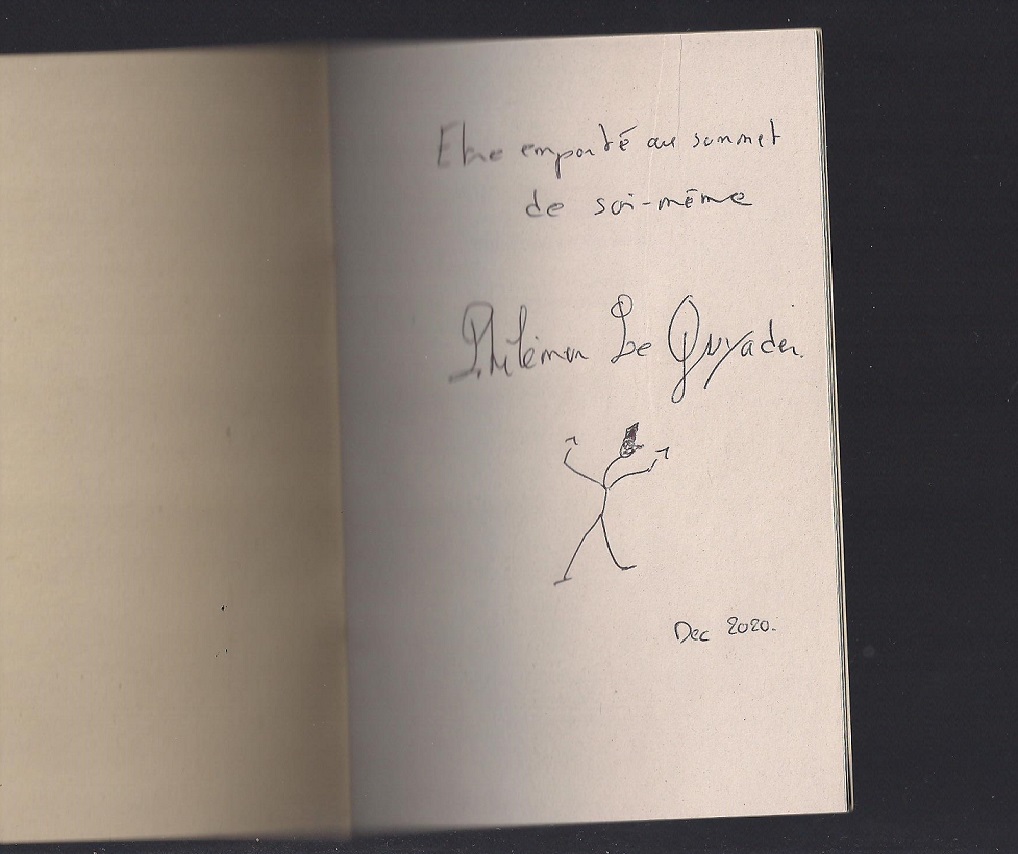 Etre emporté au sommet
de soi-même
Philémon Le Guyader.
Dec 2020.